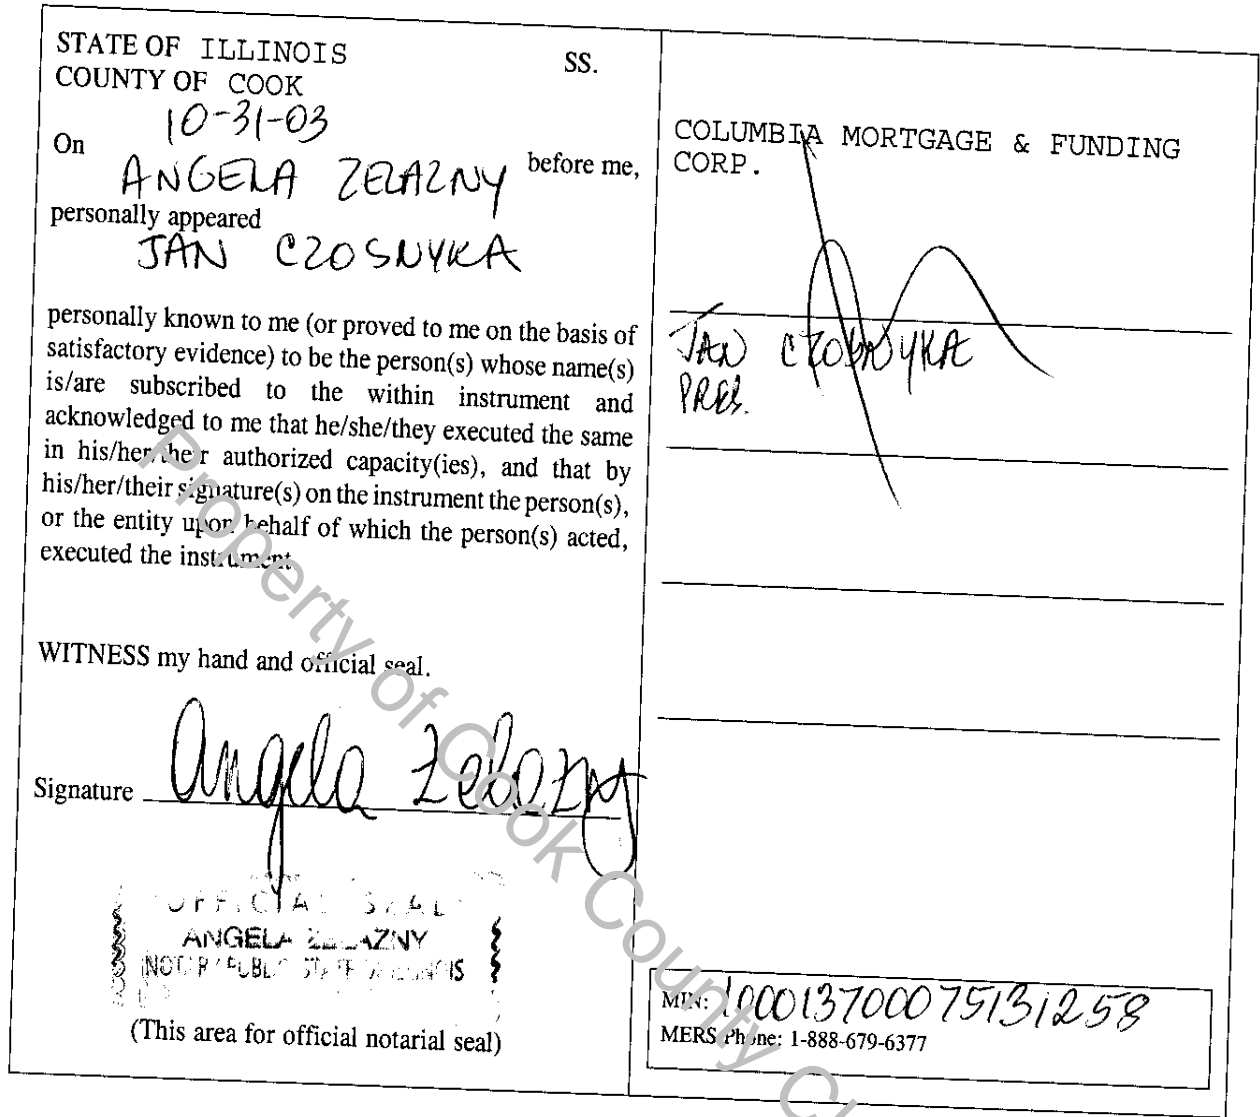 STATE OF ILLINOIS SS.
COUNTY OF COOK
10-31-03
On
ANGELA ZELAZNY before me,
personally appeared
JAN CZOSNYKA
personally known to me (or proved to me on the basis of
satisfactory evidence) to be the person(s) whose name(s)
is/are subscribed to the within instrument and
acknowledged to me that he/she/they executed the same
in his/her/their authorized capacity(ies), and that by
his/her/their signature(s) on the instrument the person(s),
or the entity upon behalf of which the person(s) acted,
executed the instrument.
WITNESS my hand and official seal.
Signature Angela Zelazny
OFFICIAL SEAL
ANGELA ZELAZNY
NOTARY PUBLIC STATE OF ILLINOIS
(This area for official notarial seal)
COLUMBIA MORTGAGE & FUNDING
CORP.
JAN CZOSNYKA
PRES.
MIN: 100013700075131258
MERS Phone: 1-888-679-6377
Property of Cook County